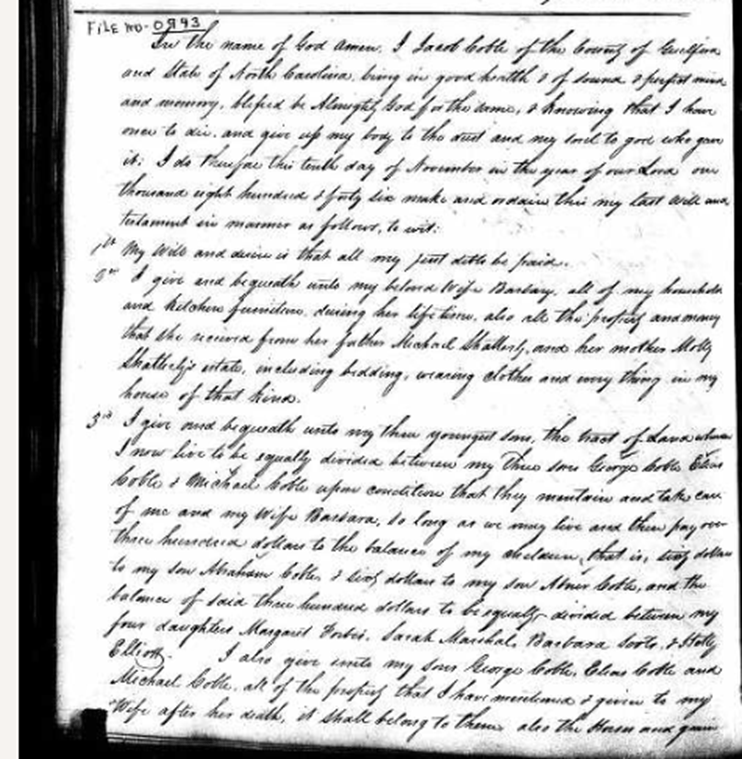 FILE NO- 0993
In the name of God Amen. I Jacob Coble of the County of Guilford
and State of North Carolina, being in good health & of sound & perfect mind
and memory, blessed be Almighty God for the same, & knowing that I have
once to die, and give up my body to the dust and my soul to god who gave
it; I do therefore this tenth day of November in the year of our Lord one
thousand eight hundred & forty six make and ordain this my last Will and
testament in manner as follows, to wit:
1st My Will and desire is that all my just debts be paid.
2nd I give and bequeath unto my beloved Wife Barbary, all of my household
and kitchen furniture, during her life time, also all the property and money
that she recieved from her father Michael Shatterly, and her mother Molly
Shatterly's estate, including bedding, wearing clothes and every thing in my
house of that kind.
3rd I give and bequeath unto my three youngest sons, the tract of Land whereon
I now live to be equally divided between my three sons George Coble Elias
Coble & Michael Coble upon condition that they mentain and take care
of me and my Wife Barbara, so long as we may live and then pay over
three hundred dollars to the balance of my children, that is, sixty dollars
to my son Abraham Coble, & sixty dollars to my son Abner Coble, and the
balance of said three hundred dollars to be equally divided between my
four daughters Margaret Forbis, Sarah Marshal, Barbara &
Elliott. I also give unto my sons George Coble, Elias Coble and
Michael Coble, all of the property that I have mentioned & given to my
Wife after her death, it shall belong to them also the Horses and